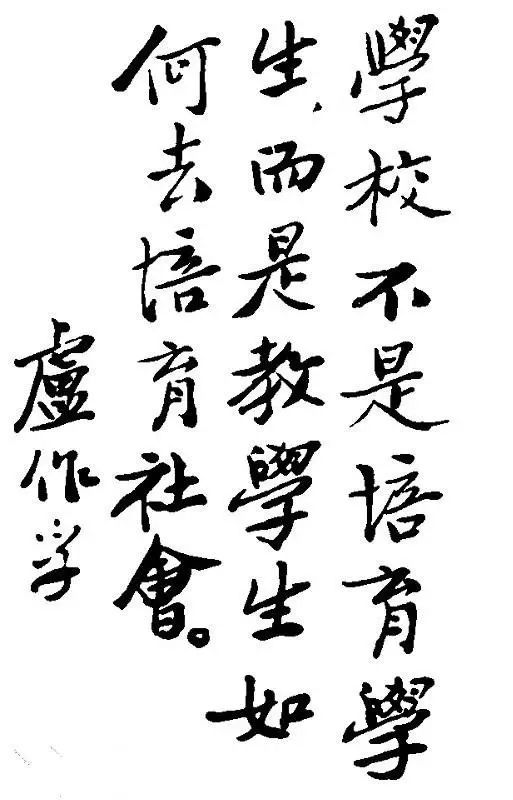 學校不是培育學
生，而是教學生如
何去培育社會。
盧作孚